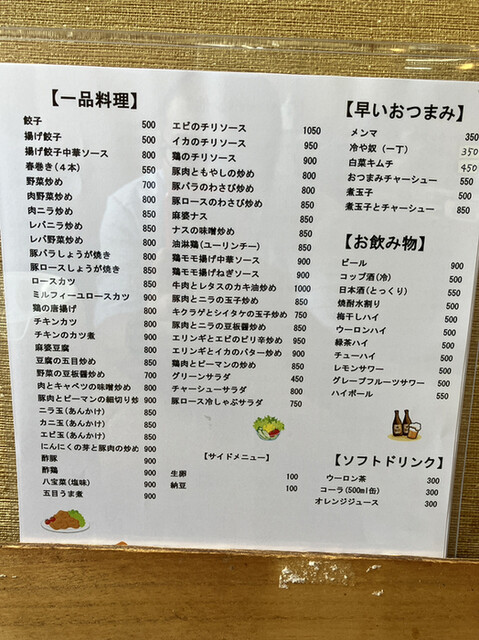 【一品料理】
餃子 500
揚げ餃子 500
揚げ餃子中華ソース 800
春巻き(4本) 550
野菜炒め 700
肉野菜炒め 800
肉ニラ炒め 850
レバニラ炒め 850
レバ野菜炒め 850
豚バラしょうが焼き 850
豚ロースしょうが焼き 850
ロースカツ 850
ミルフィーユロースカツ 900
鶏の唐揚げ 800
チキンカツ 800
チキンのカツ煮 900
麻婆豆腐 800
豆腐の五目炒め 850
野菜の豆板醤炒め 700
肉とキャベツの味噌炒め 800
豚肉とピーマンの細切り炒 900
ニラ玉(あんかけ) 850
カニ玉(あんかけ) 850
エビ玉(あんかけ) 850
にんにくの芽と豚肉の炒め 900
酢豚 900
酢鶏 900
八宝菜(塩味) 900
五目うま煮 900
エビのチリソース 1050
イカのチリソース 900
鶏のチリソース 900
豚肉ともやしの炒め 800
豚バラのわさび炒め 850
豚ロースのわさび炒め 850
麻婆ナス 850
ナスの味噌炒め 850
油淋鶏(ユーリンチー) 850
鶏モモ揚げ中華ソース 900
鶏モモ揚げねぎソース 900
牛肉とレタスのカキ油炒め 1000
豚肉とニラの玉子炒め 800
キクラゲとシイタケの玉子炒め 750
豚肉とニラの豆板醤炒め 900
エリンギとエビのピリ辛炒め 900
エリンギとイカのバター炒め 900
鶏肉とピーマンの炒め 850
グリーンサラダ 450
チャーシューサラダ 800
豚ロース冷しゃぶサラダ 750
【サイドメニュー】
生卵 100
納豆 100
【早いおつまみ】
メンマ 350
冷や奴(一丁) 350
白菜キムチ 450
おつまみチャーシュー 550
煮玉子
煮玉子とチャーシュー 850
【お飲み物】
ビール 900
コップ酒(冷) 500
日本酒(とっくり) 550
焼酎水割り 500
梅干しハイ 500
ウーロンハイ 500
緑茶ハイ 500
チューハイ 500
レモンサワー 500
グレープフルーツサワー 500
ハイボール 550
【ソフトドリンク】
ウーロン茶 300
コーラ(500ml缶) 300
オレンジジュース 300